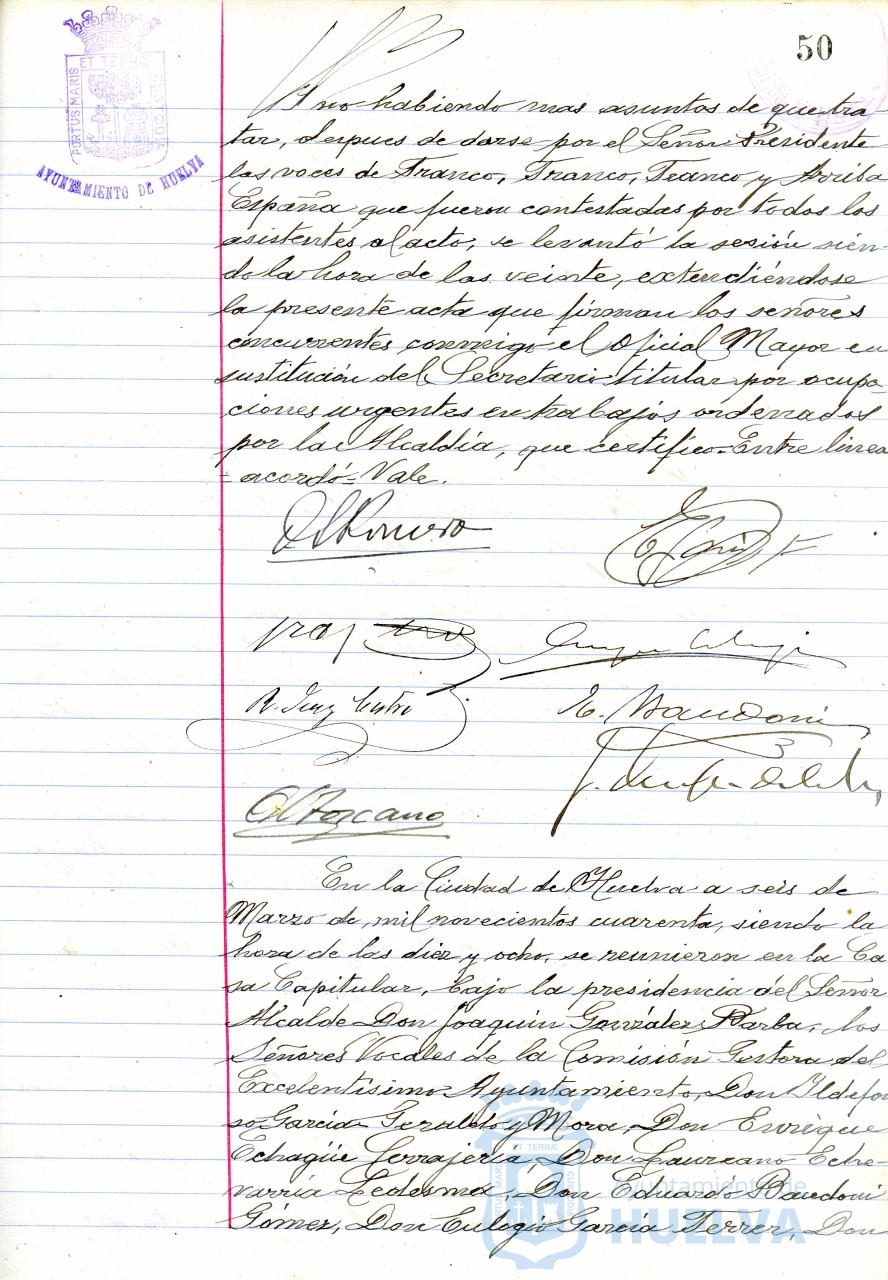 50
PORTUS MARIS ET TERRAE CUSTODIA
AYUNTAMIENTO DE HUELVA
Y no habiendo mas asuntos de que tra-
tar, despues de darse por el Señor Presidente
las voces de Franco, Franco, Franco y Arriba
España que fueron contestadas por todos los
asistentes al acto, se levantó la sesión sién-
do la hora de las veinte, extendiéndose
la presente acta que firman los señores
concurrentes conmigo el Oficial Mayor en
sustitución del Secretario titular por ocupa-
ciones urgentes en trabajos ordenados
por la Alcaldía, que certifico=Entre linea
=acordó=Vale.
Romero
E. Baudoni
Toscano
En la Ciudad de Huelva a seis de
Marzo de mil novecientos cuarenta, siendo la
hora de las diez y ocho, se reunieron en la Ca
sa Capitular, bajo la presidencia del Señor
Alcalde Don Joaquin González Barba, los
Señores Vocales de la Comisión Gestora del
Excelentísimo Ayuntamiento, Don Ildefon
so García y Mora, Don Enrique
Echagüe Don Laureano Eche-
varría Ledesma, Don Eduardo Baudoni
Gómez, Don Eulogio García Ferrer, Don
Ayuntamiento de
HUELVA